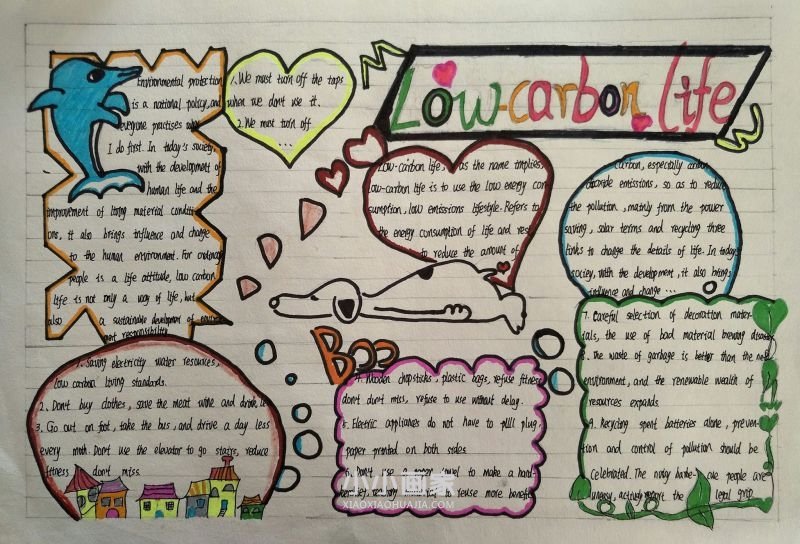 Low-carbon Life
Environmental protection
is a national policy, and
everyone practises
I do first. In today's society,
with the development of
human life and the
improvement of living material conditi
ons, it also brings influence and change
to the human environment. For ordinary
people is a life attitude, low carbon
life is not only a way of life, but
also a sustainable development of
ment responsibility
1. We must turn off the taps
when we don't use it.
2. We must turn off
...
Low-carbon life, as the name implies,
low-carbon life is to use the low energy con
sumption, low emissions lifestyle. Refers to
the energy consumption of life and
to reduce the amount of
carbon, especially carbon
dioxide emissions, so as to reduce
the pollution, mainly from the power
saving, solar terms and recycling three
links to change the details of life. In today's
society, with the development, it also brings
influence and change ...
Boo
1. Saving electricity water resources,
low carbon living standards.
2. Don't buy clothes, save the meat wine and drink,
3. Go out on foot, take the bus, and drive a day less
every moth. Don't use the elevator to go stairs, reduce
fitness don't miss.
4. Wooden chopsticks, plastic bags, refuse fitness
don't don't miss, refuse to use without delay.
5. Electric appliances do not have to pull plug,
paper printed on both sides
6. Don't use a paper towel to make a hand
to reuse more benefit
7. Careful selection of decoration mater-
ials, the use of bad material brewing disaster
8. The waste of garbage is better than the
environment, and the renewable wealth of
resources expands.
9. Recycling spent batteries alone, preven-
tion and control of pollution should be
Celebrated. The people are
the legal
小小画家
XIAOXIAOHUAJIA.COM